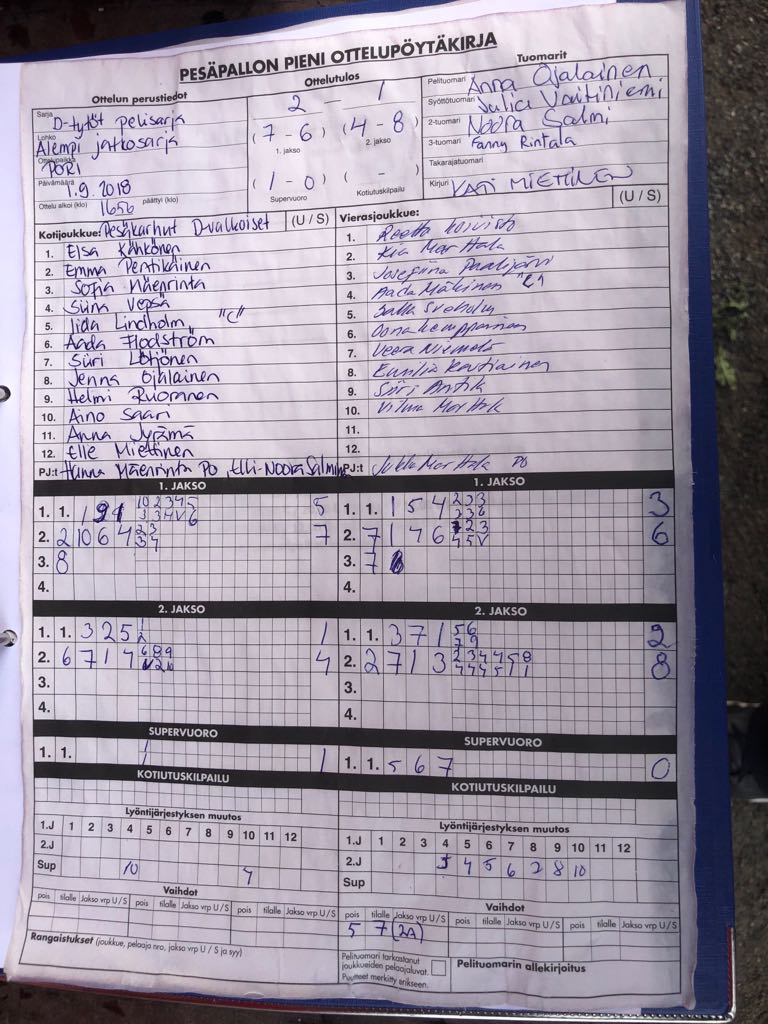 PESÄPALLON PIENI OTTELUPÖYTÄKIRJA
Ottelun perustiedot
Sarja D-tytöt pelisarja
Lohko Alempi jatkosarja
Ottelupaikka PORI
Päivämäärä 1.9.2018
Ottelu alkoi (klo) 1656 päättyi (klo)
Ottelutulos
2 - 1
(7 - 6) (4 - 8)
1. jakso 2. jakso
(1 - 0) ( - )
Supervuoro Kotiutuskilpailu
Tuomarit
Pelituomari Anna Ojalainen
Syöttötuomari Julia
2-tuomari Noora Salmi
3-tuomari Fanny Rintala
Takarajatuomari
Kirjuri KATI MIETTINEN
Kotijoukkue: Pesäkarhut D-valkoiset (U / S)
1. Elsa Kähkönen
2. Emma Pentikäinen
3. Sofia Mäenrinta
4. Siina Vepsä
5. Iida Lindholm "C"
6. Aada Flodström
7. Siiri Lötjönen
8. Jenna Ojalainen
9. Helmi Ruoranen
10. Aino Saari
11. Anna Jyrämä
12. Elle Miettinen
PJ:t Hanna Mäenrinta PO, Elli-Noora Salminen
Vierasjoukkue: (U / S)
1. Reetta Koivisto
2. Kia Marttala
3. Josefiina
4. Aada Mäkinen "C"
5. Salla
6. Oona Kemppainen
7. Veera Niemelä
8. Eemilia
9. Siiri Anttila
10. Vilma Marttala
11.
12.
PJ:t Jukka Marttala PO
1. JAKSO
1. 1. 5
2. 2 10 6 4 7
3. 8
4.
1. JAKSO
1. 1. 1 5 4 3
2. 7 1 4 6 6
3. 7
4.
2. JAKSO
1. 1. 3 2 5 1
2. 6 7 1 4 4
3.
4.
2. JAKSO
1. 1. 3 7 1 2
2. 2 7 1 3 8
3.
4.
SUPERVUORO
1. 1. 1
SUPERVUORO
1. 1. 5 6 7 0
KOTIUTUSKILPAILU
KOTIUTUSKILPAILU
Lyöntijärjestyksen muutos
1.J 1 2 3 4 5 6 7 8 9 10 11 12
2.J
Sup 10 4
Lyöntijärjestyksen muutos
1.J 1 2 3 4 5 6 7 8 9 10 11 12
2.J 4 5 6 2 8 10
Sup
Vaihdot
pois tilalle Jakso vrp U / S pois tilalle Jakso vrp U / S pois tilalle Jakso vrp U / S
Rangaistukset (joukkue, pelaaja nro, jakso vrp U / S ja syy)
Vaihdot
pois tilalle Jakso vrp U / S pois tilalle Jakso vrp U / S pois tilalle Jakso vrp U / S
5 7 (2A)
Pelituomari tarkastanut
joukkueiden pelaajaluvat.
Puutteet merkitty erikseen.
Pelituomarin allekirjoitus